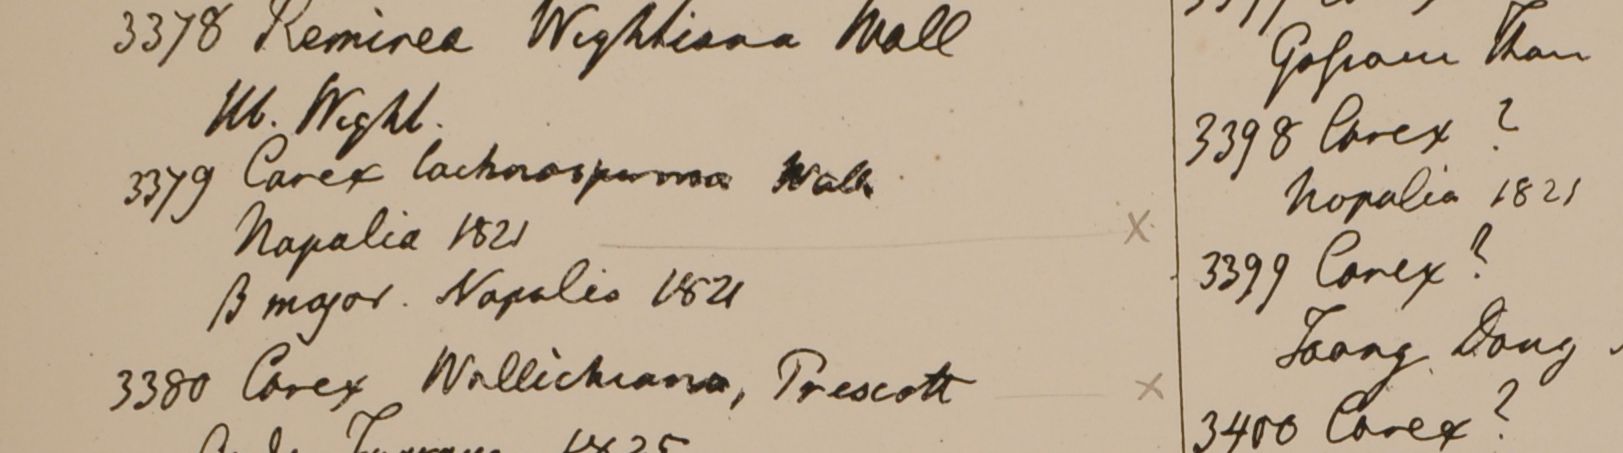 3378 Remirea Wightiana Wall
Hb. Wight.
3379 Carex lachnosperma Wall
Napalia 1821
β major. Napalia 1821
3380 Carex Wallichiana, Prescott
1825
3398 Carex ?
Napalia 1821
3399 Carex ?
Taong Dong
3400 Carex ?